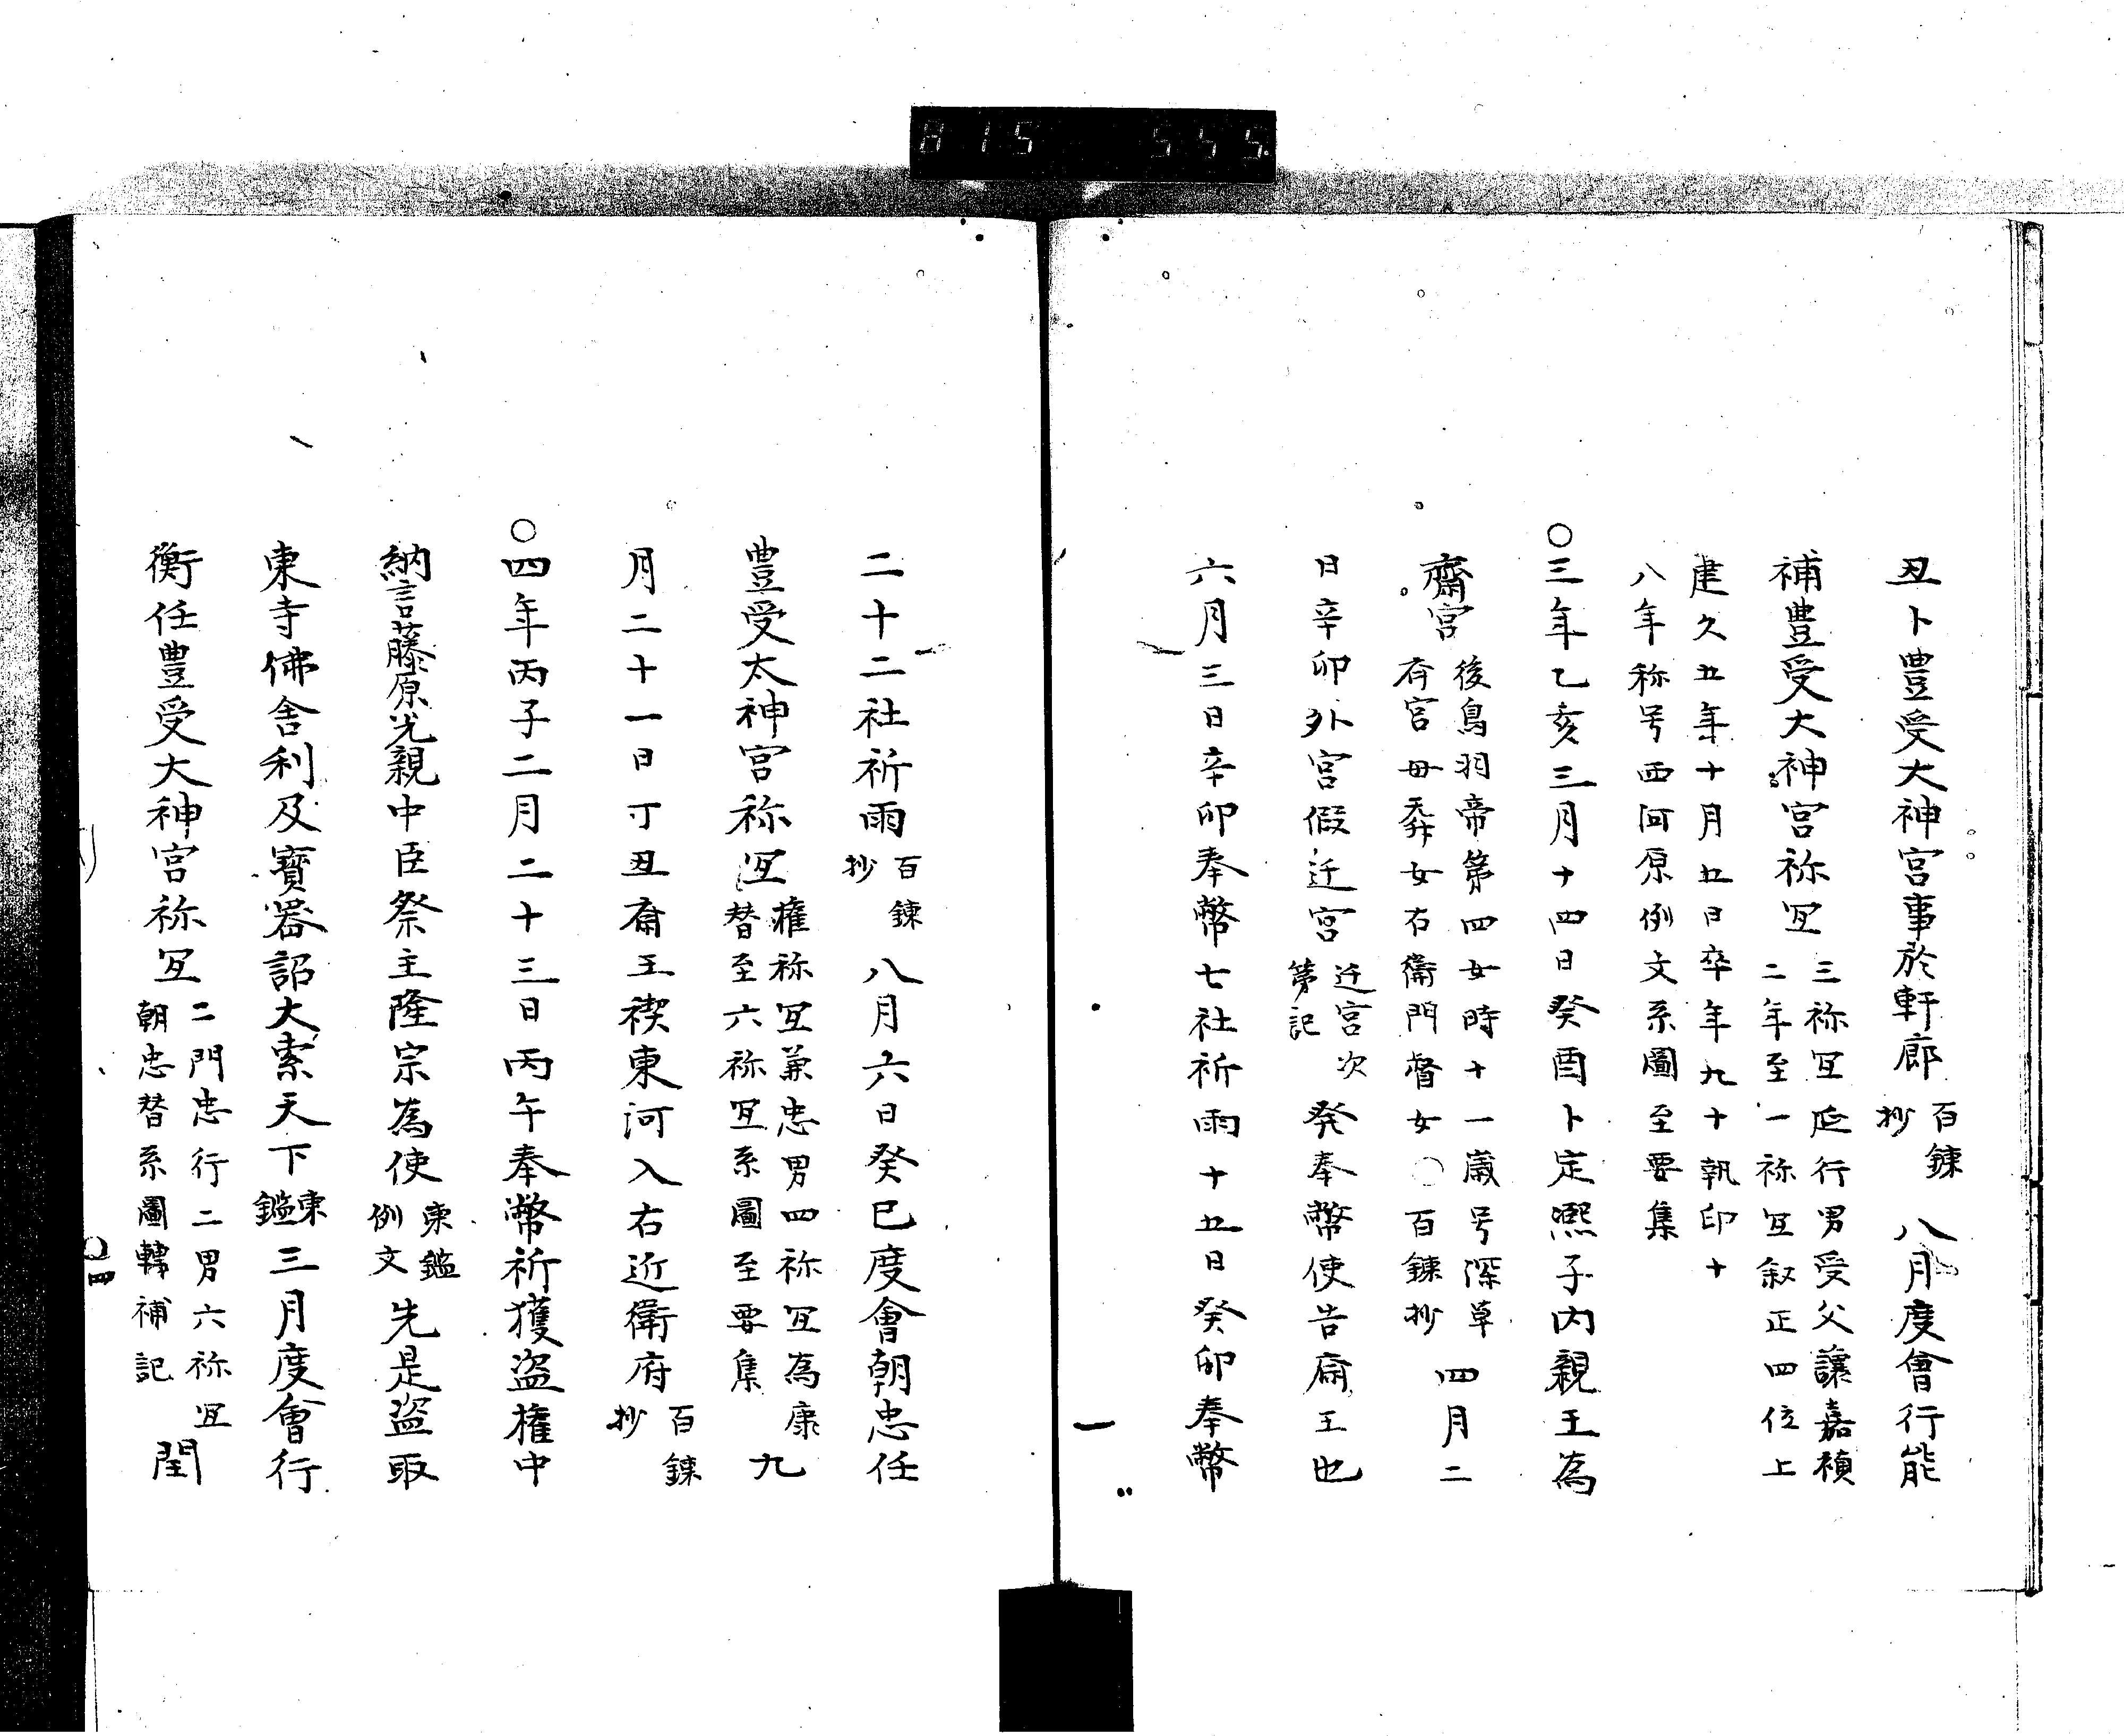 815 555
丑卜豊受大神宮事於軒廊百錬抄八月度會行能
補豊受大神宮祢冝三祢冝延行男受父讓嘉禎二年至一祢冝叙正四位上
建久五年十月五日卒年九十執印十
八年称号西河原例文系圖至要集
〇三年乙亥三月十四日癸酉卜定熈子内親王為
齋宮後鳥羽帝第四女時十一歳号深草斎宮母舞女右衞門督女〇百錬抄四月二
日辛卯外宮假迁宮迁宮次第記発奉幣使告斎王也
六月三日辛卯奉幣七社祈雨十五日癸卯奉幣
二十二社祈雨百錬抄八月六日癸巳度會朝忠任
豊受太神宮祢冝権祢冝兼忠男四祢冝為康替至六祢冝系圖至要集九
月二十一日丁丑斎王禊東河入右近衞府百錬抄
〇四年丙子二月二十三日丙午奉幣祈獲盗權中
納言藤原光親中臣祭主隆宗為使東鑑例文先是盗取
東寺佛舎利及寳器詔大索天下東鑑三月度會行
衡任豊受大神宮祢冝二門忠行二男六祢冝朝忠替系圖轉補記閏
四